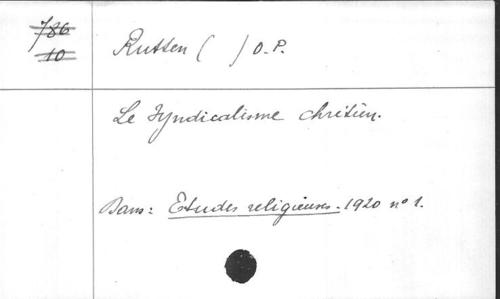 786
10
Rutten ( ) O.P.
Le Syndicalisme chrétien.
Dans: Etudes religieuses. 1920 n° 1.